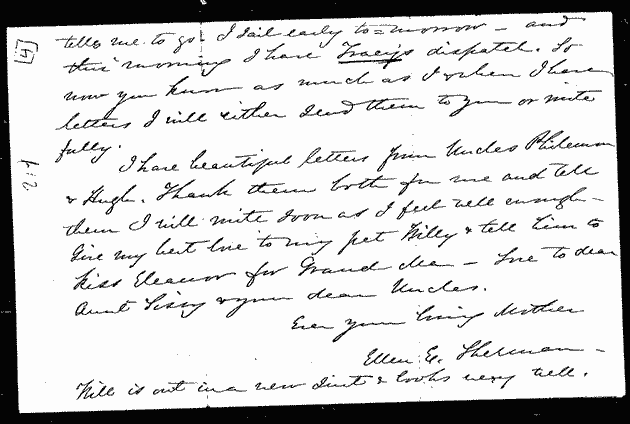 [4]
tells me to go. I sail early to=morrow — and
this morning I have Tracy's dispatch. So
now you know as much as I & when I have
letters I will either send them to you or write
fully.
I have beautiful letters from Uncles Philemon
& Hugh. Thank them both for me and tell
them I will write soon as I feel well enough —
Give my best love to my pet Willy & tell him to
kiss Eleanor for Grand Ma — Love to dear
Aunt Sissy & your dear Uncles.
Ever your loving Mother
Ellen E. Sherman —
Will is out in a new suit & looks very well.